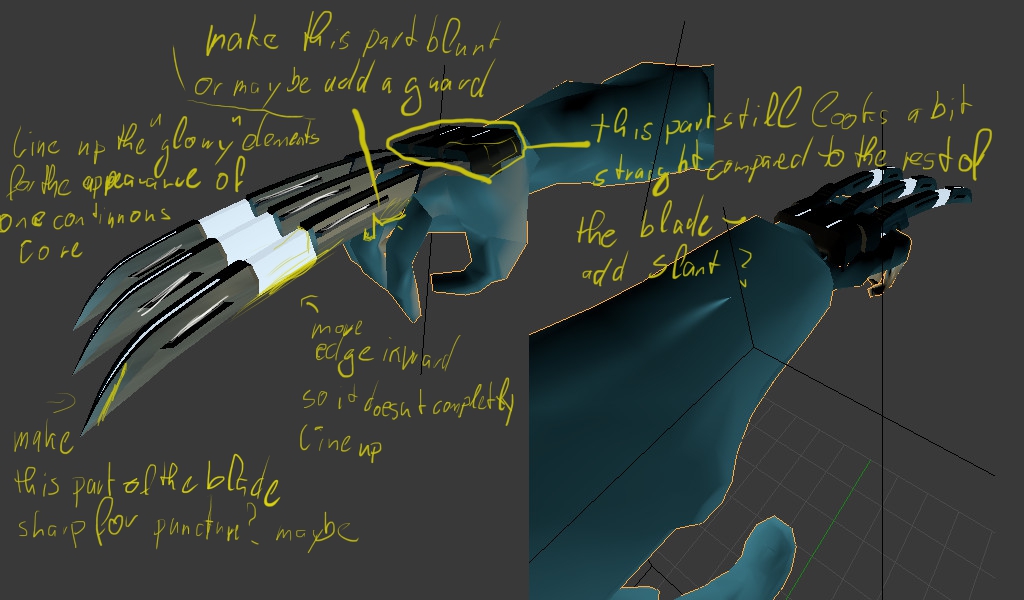 make this part blunt
or maybe add a guard
Line up the "glowy" elements
for the appearance of
one continous
core
this part still looks a bit
straight compared to the rest of
the blade
add slant?
move
edge inward
so it doesnt completly
line up
make
this part of the blade
sharp for puncture? maybe